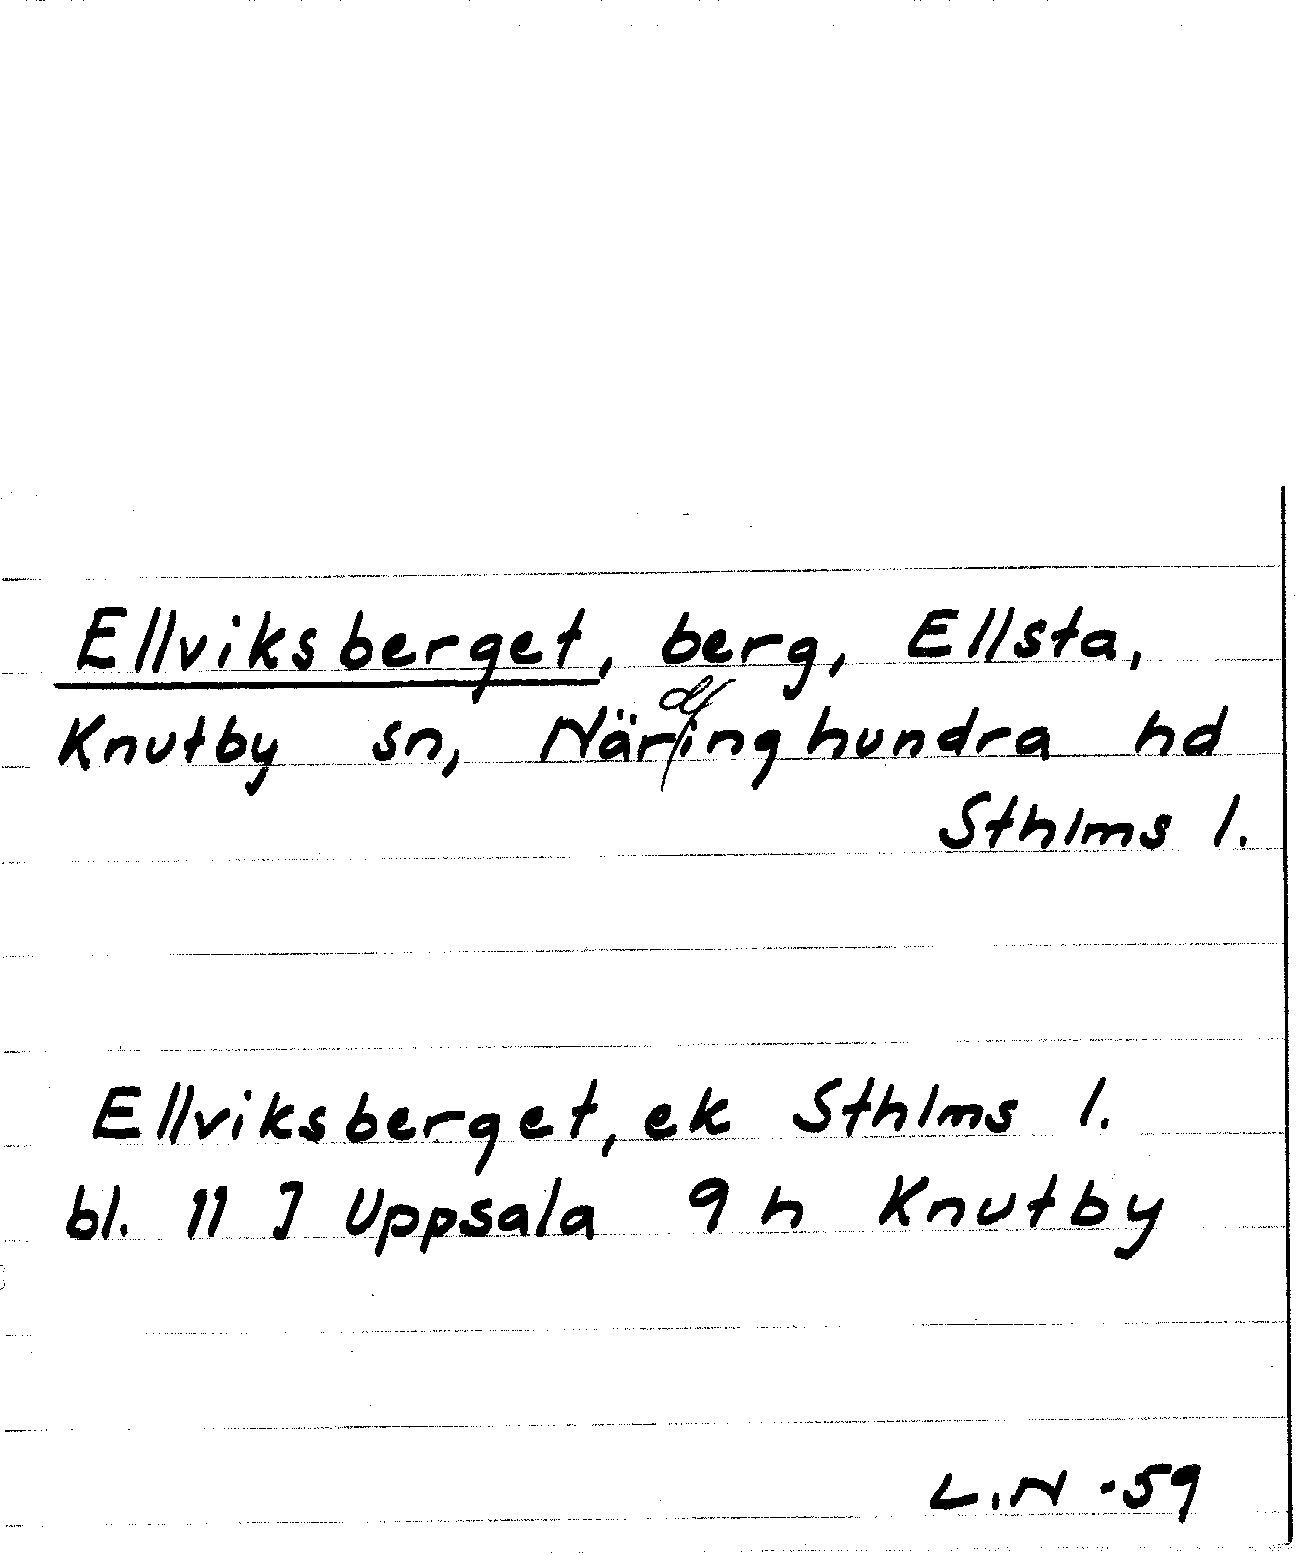 Ellviksberget, berg, Ellsta,
Knutby sn, Närdinghundra hd
Sthlms l.
Ellviksberget, ek Sthlms l.
bl. 11 J Uppsala 9 h Knutby
L.N -59